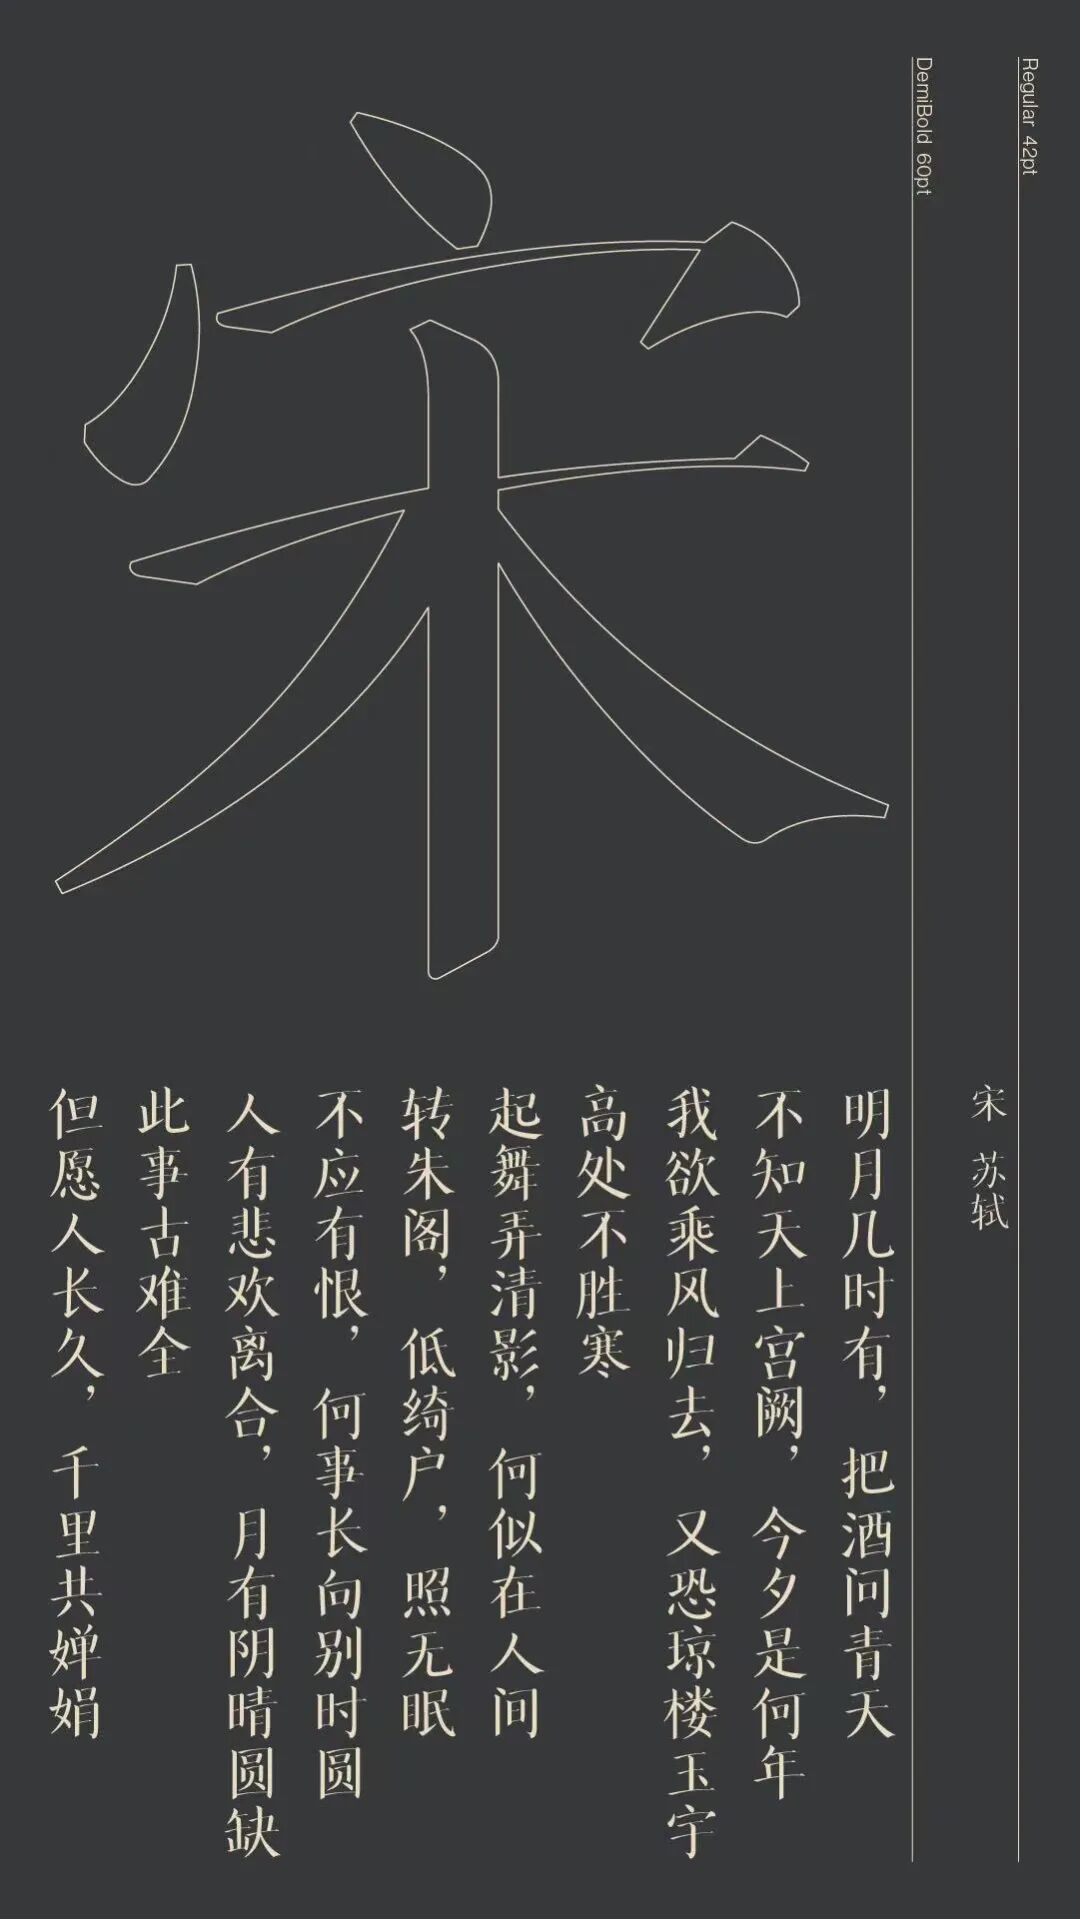 Regular 42pt
DemiBold 60pt
宋
宋 苏轼
明月几时有，把酒问青天
不知天上宫阙，今夕是何年
我欲乘风归去，又恐琼楼玉宇
高处不胜寒
起舞弄清影，何似在人间
转朱阁，低绮户，照无眠
不应有恨，何事长向别时圆
人有悲欢离合，月有阴晴圆缺
此事古难全
但愿人长久，千里共婵娟